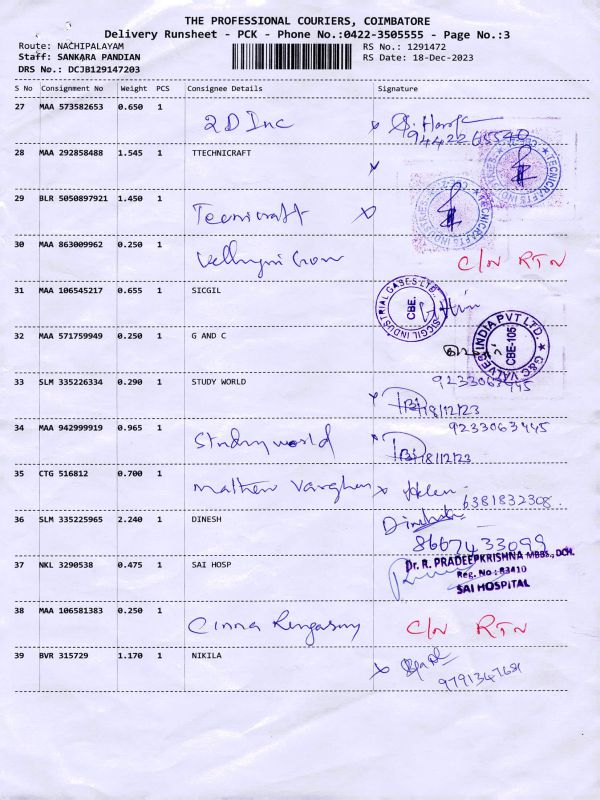 THE PROFESSIONAL COURIERS, COIMBATORE
Delivery Runsheet - PCK - Phone No.:0422-3505555 - Page No.:3
Route: NACHIPALAYAM
RS No.: 1291472
Staff: SANKARA PANDIAN
RS Date: 18-Dec-2023
DRS No.: DCJB129147203
S No Consignment No Weight PCS Consignee Details Signature
27 MAA 573582653 0.650 1 2D Inc
9442265540
28 MAA 292858488 1.545 1 TTECHNICRAFT
29 BLR 5050897921 1.450 1 Tecnicraft
30 MAA 863009962 0.250 1 C/N RTN
31 MAA 106545217 0.655 1 SICGIL
SICGIL INDUSTRIAL GASES LTD
CBE.
32 MAA 571759949 0.250 1 G AND C
G&C VALVES INDIA PVT LTD.
CBE-105
33 SLM 335226334 0.290 1 STUDY WORLD 9233063445
18/12/23
34 MAA 942999919 0.965 1 Study world 9233063445
18/12/23
35 CTG 516812 0.700 1 Mathew Varghese
6381832308
36 SLM 335225965 2.240 1 DINESH Dinesh
8667433099
37 NKL 3290538 0.475 1 SAI HOSP
Dr. R. PRADEEPKRISHNA MBBS., DCH.
Reg. No : 83410
SAI HOSPITAL
38 MAA 106581383 0.250 1 Cinna Rengasamy C/N RTN
39 BVR 315729 1.170 1 NIKILA